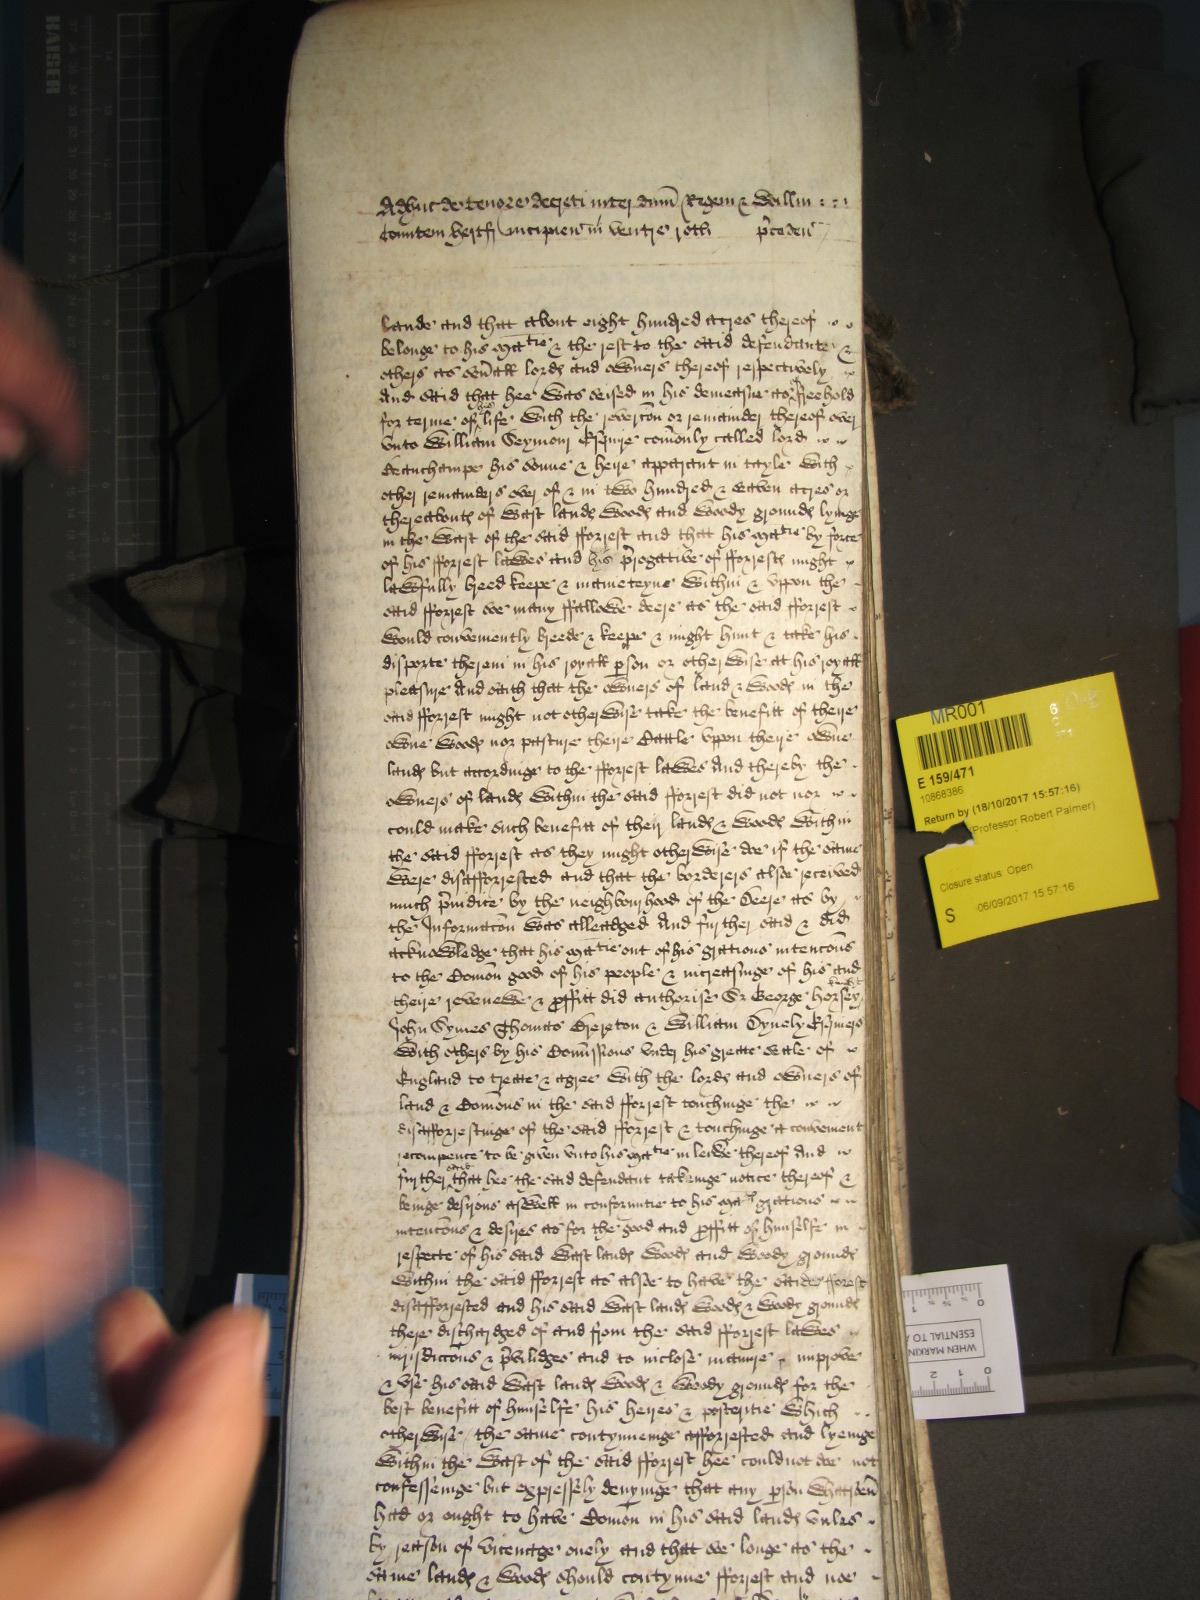 Adhuc de tenore decreti inter dnm Regem & Willm
Comitem Hertf incipien in ventre roth pceden
lande and that about eight hundred acres thereof
belonge to his Matie & the rest to the said defendante &
others as sevall lordℯ and owners thereof respectively
And said that hee was seised in his demeasne as of freehold
for terme of his life with the revercon or remainder thereof over
unto William Seymour Esquire comonly called lord
Beauchampe his sonne & heire apparant in tayle with
other remainders over of & in two hundred & seaven acres or
thereabouts of wast landℯ woodℯ and woody groundℯ lyinge
in the wast of the said fforrest and that his Matie by force
of his fforrest lawes and his progative of fforrestℯ might
lawfully breed keepe & mainteyne within & uppon the
said fforrest soe many ffallowe deere as the said fforrest
would conveniently breede & keepe & might hunt & take his
disporte therein in his royall pson or otherwise at his royall
pleasure And saith that the owners of land & woodℯ in the
said fforrest might not otherwise take the benefitt of theire
owne woodℯ nor pasture theire Cattle uppon theire owne
landℯ but accordinge to the fforrest lawes And thereby the
owners of landℯ within the said fforrest did not nor
could make such benefitt of their landℯ & woodℯ within
the said fforrest as they might otherwise doe if the same
were disafforrested and that the borderers alsoe received
much piudice by the neighbourhood of the Deere as by
the Informacon was alleadged And further said & did
acknowledge that his Matie out of his gratious intencons
to the Comon good of his people & increasinge of his and
theire revenewe & pffitt did authorise Sr George Horsey knight
John Symes Thomas Brereton & William Dynely Esquiers
with others by his Comissions under his greate seale of
England to treate & agree with the lordℯ and owners of
land & Comons in the said fforrest touchinge the
disafforrestinge of the said fforrest & touchinge a convenient
recompence to be given unto his Matie in leiwe thereof And
further said that hee the said defendant takeinge notice thereof &
beinge desirous aswell in conformitie to his Mats gratious
intencons & desires as for the good and pffitt of himselfe in
respecte of his said wast landℯ woodℯ and woody groundℯ
within the said fforrest as alsoe to have the said fforrest
disafforrested and his said wast landℯ woodℯ & woody groundℯ
there discharged of and from the said fforrest lawes
jurisdiccons & priviledges and to inclose manure improve
& use his said wast landℯ woodℯ & woody groundℯ for the
best benefitt of himselfe his heires & posteritie which
otherwise the same contynueinge afforrested and lyeinge
within the wast of the said fforrest hee could not doe not
confesseinge but expressely denyinge that any pson whatsoev
had or ought to have Comon in his said landℯ unles
by reason of vicenage onely and that soe longe as the
same landℯ & woodℯ should contynue fforrest and noe
KAISER
MR001
E 159/471
10868386
Return by (18/10/2017 15:57:16)
(Professor Robert Palmer)
Closure status: Open
S 06/09/2017 15:57:16
WHEN MARKIN
ESENTIAL TO A
0 1 2
0 1